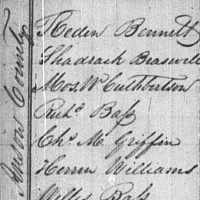 Anson County
Heden Bennett
Shadrack Braswell
Mos. W Cuthbertson
Richd. Bass
Chs. M. Griffin
Herrin Williams
Willis Bass